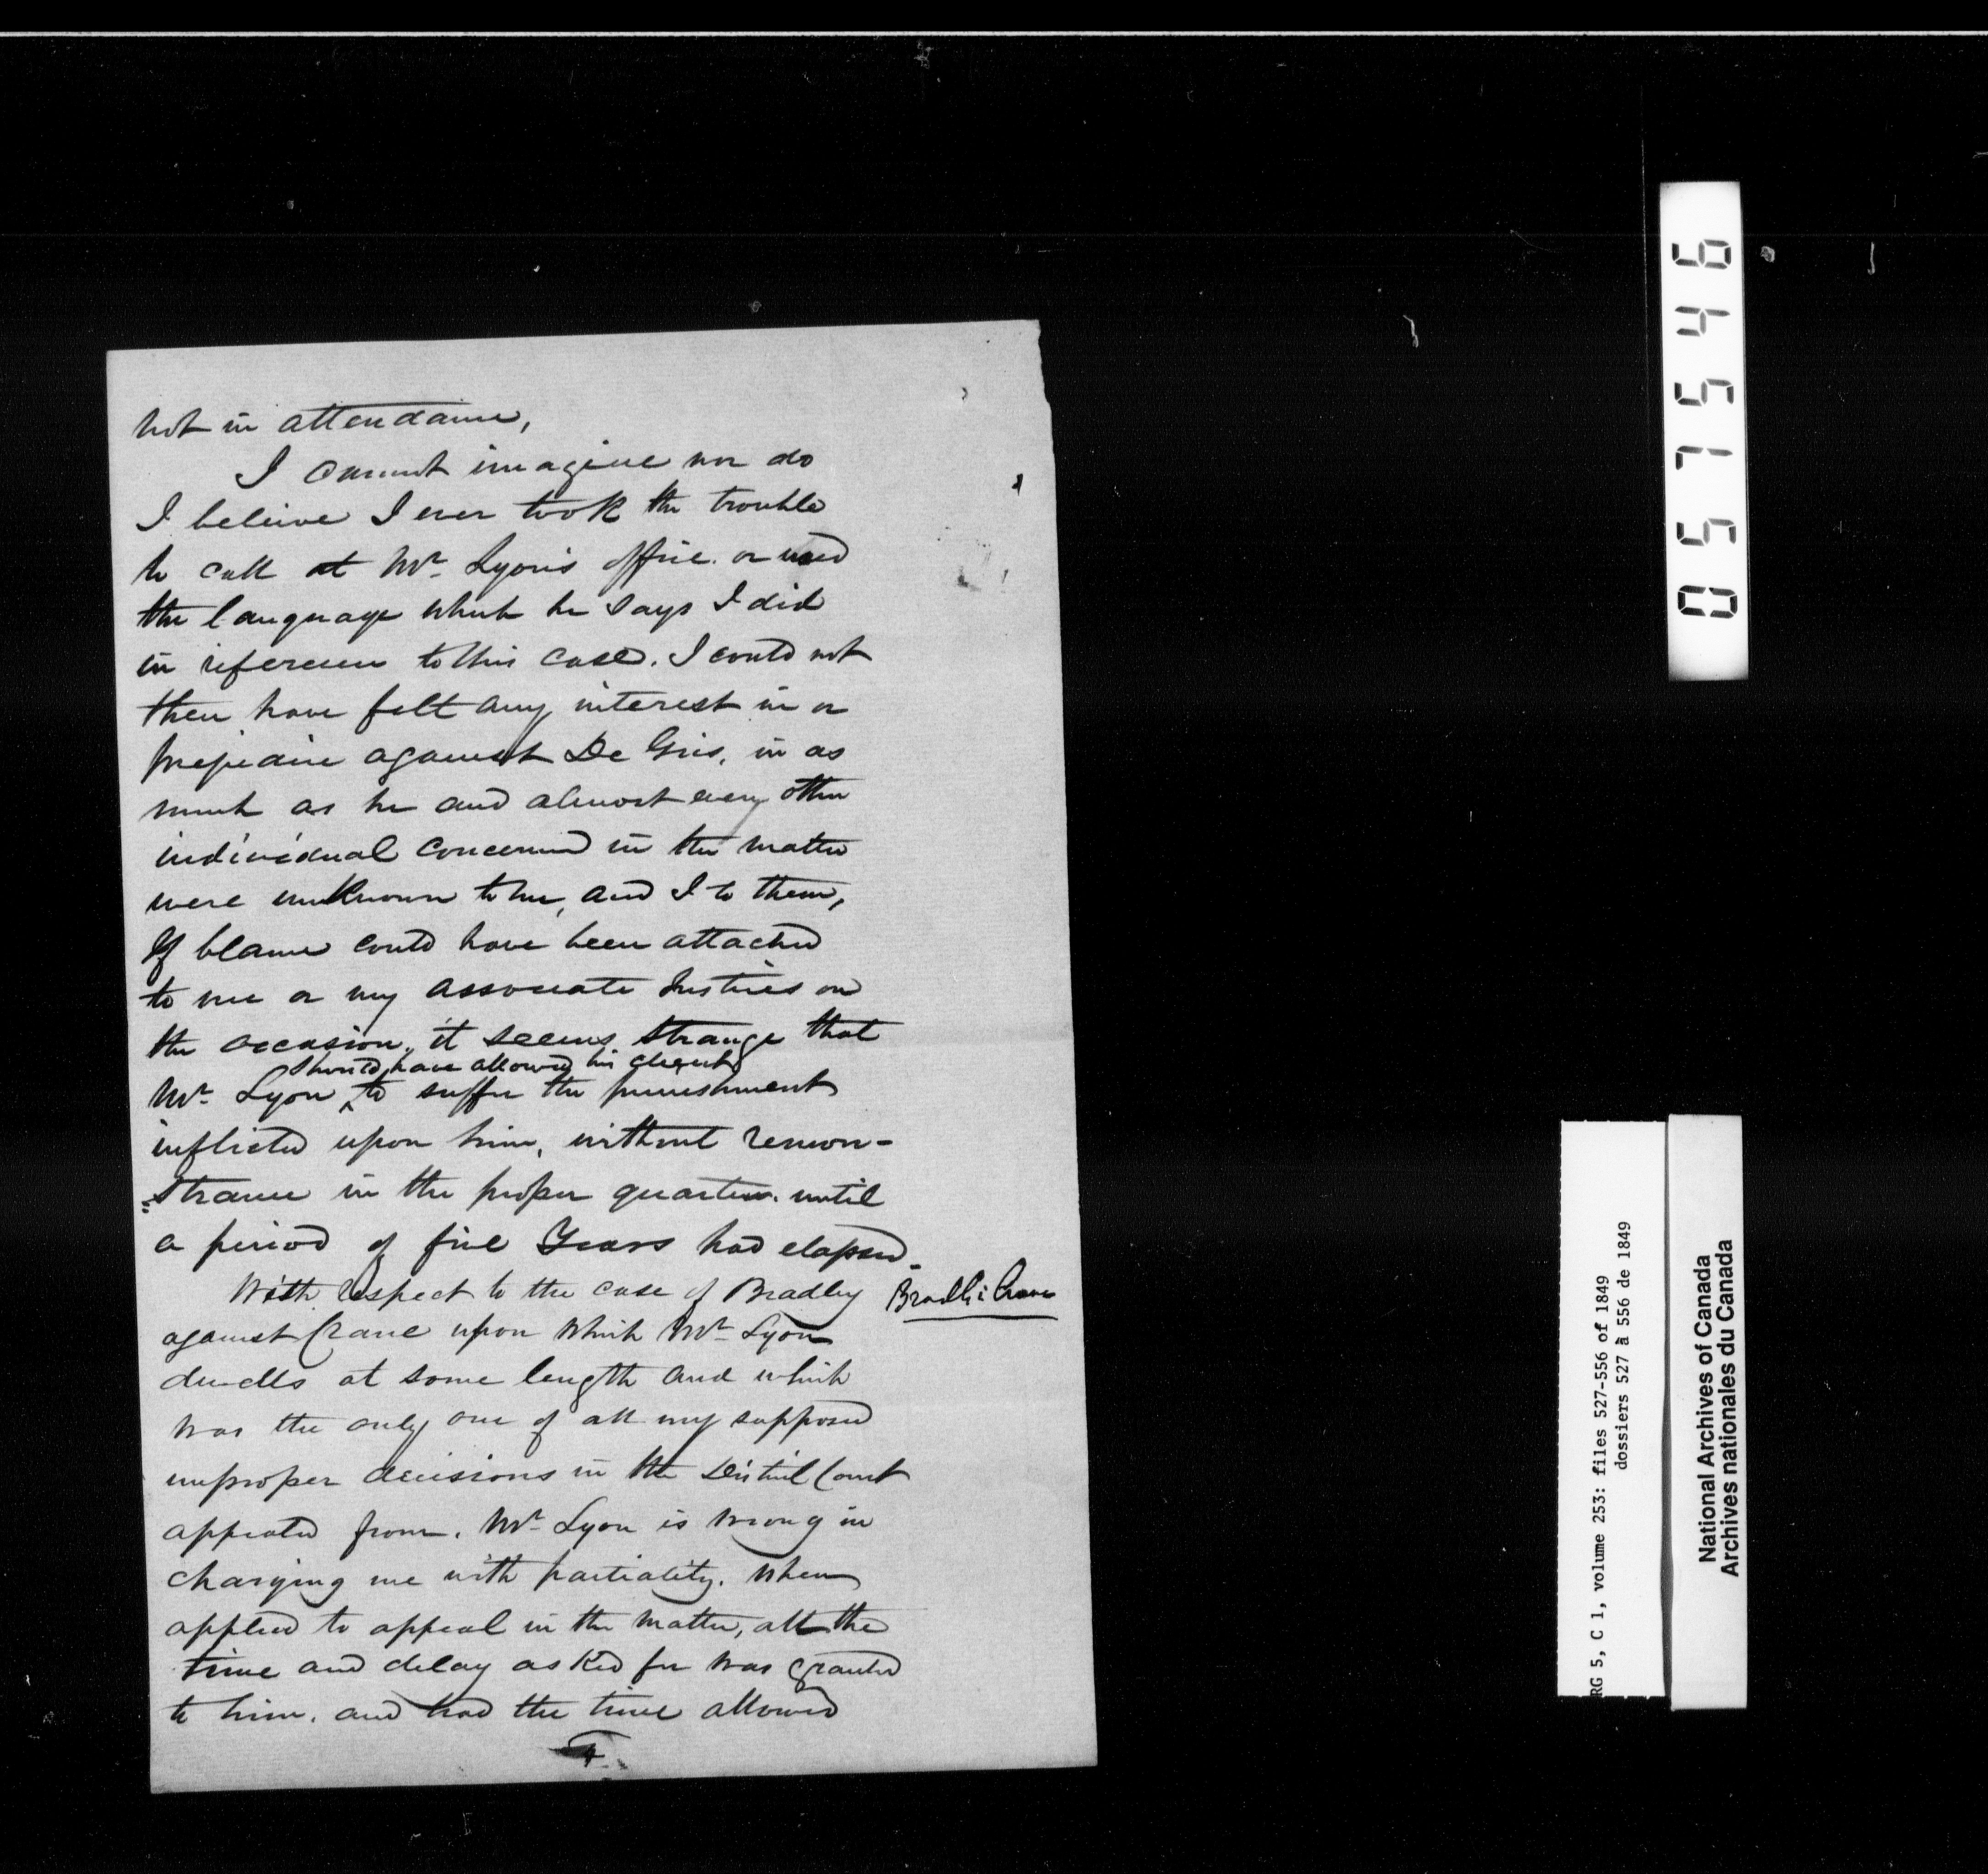 not in attendance,
I cannot imagine nor do
I beleive I ever took the trouble
to call at Mr. Lyon's office. or used
the language which he says I did
in reference to this case. I could not
then have felt any interest in or
prejudice against De Gris, in as
much as he and almost every other
individual concerned in the matter
were unknown to me, and I to them,
If blame could have been attached
to me or my associate Justices on
the occasion, it seems strange that
should have allowed his client
Mr. Lyon ^ to suffer the punishment
inflicted upon him, without remon-
strance in the proper quarter. until
a period of five Years had elapsed.
With respect to the case of Bradley
against Crane upon which Mr. Lyon
dwells at some length and which
was the only one of all my supposed
improper decisions in the District Court
appealed from. Mr. Lyon is wrong in
charging me with partiality. When
applied to appeal in the matter, all the
time and delay asked for was granted
to him. and had the time allowed
4
057546
RG 5, C 1, volume 253: files 527-556 of 1849
dossiers 527 à 556 de 1849
National Archives of Canada
Archives nationales du Canada